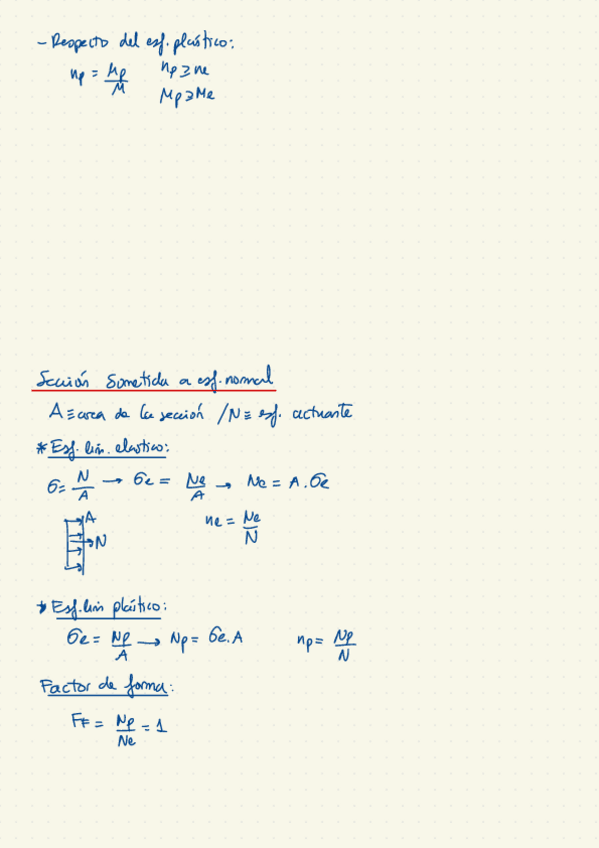 - Respecto del esf. plástico:
np = Mp/M   np ≥ ne
Mp ≥ Me
Sección Sometida a esf. normal
A ≡ area de la sección / N ≡ esf. actuante
* Esf. lím. elastico:
σ = N/A → σe = Ne/A → Ne = A . σe
A
N
ne = Ne/N
* Esf. lím plástico:
σe = Np/A → Np = σe . A   np = Np/N
Factor de forma:
FF = Np/Ne = 1